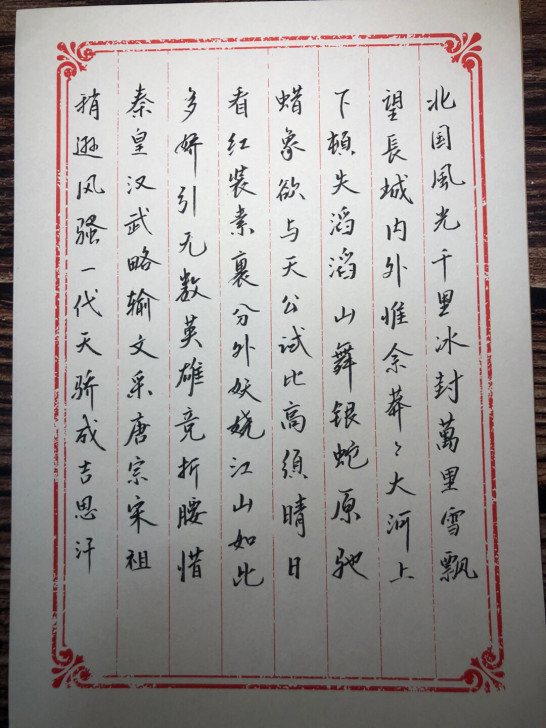 北国風光千里冰封萬里雪飘
望長城内外惟余莽〻大河上
下頓失滔滔山舞银蛇原驰
蜡象欲与天公试比高須晴日
看红装素裹分外妖娆江山如此
多娇引无数英雄竞折腰惜
秦皇汉武略输文采唐宗宋祖
稍逊风骚一代天骄成吉思汗